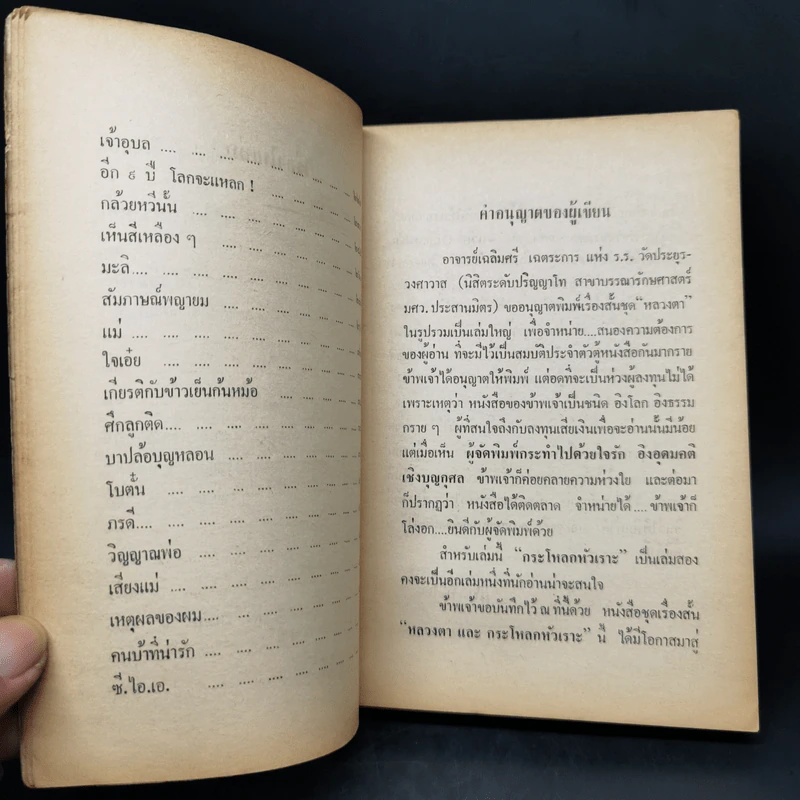 เจ้าอุบล .... .... .... .... .... .... ....
อีก ๙ ปี โลกจะแหลก ! .... .... .... ....
กล้วยหวีนั้น .... .... .... .... .... ....
เห็นสีเหลือง ๆ .... .... .... .... ....
มะลิ.... .... .... .... .... .... ....
สัมภาษณ์พญายม .... .... .... .... ....
แม่ .... .... .... .... .... .... ....
ใจเอ๋ย .... .... .... .... .... ....
เกียรติกับข้าวเย็นก้นหม้อ .... .... ....
ศึกลูกติด.... .... .... .... .... ....
บาปล้อบุญหลอน .... .... .... .... ....
โบตั๋น .... .... .... .... .... ....
ภรดี.... .... .... .... .... .... ....
วิญญาณพ่อ .... .... .... .... ....
เสียงแม่ .... .... .... .... .... ....
เหตุผลของผม.... .... .... .... ....
คนบ้าที่น่ารัก .... .... .... .... ....
ซี.ไอ.เอ. .... .... .... .... ....
คำอนุญาตของผู้เขียน
อาจารย์เฉลิมศรี เฉตระการ แห่ง ร.ร. วัดประยุร-
วงศาวาส (นิสิตระดับปริญญาโท สาขาบรรณารักษศาสตร์
มศว. ประสานมิตร) ขออนุญาตพิมพ์เรื่องสั้นชุด “หลวงตา”
ในรูปรวมเป็นเล่มใหญ่ เพื่อจำหน่าย....สนองความต้องการ
ของผู้อ่าน ที่จะมีไว้เป็นสมบัติประจำตัวตู้หนังสือกันมากราย
ข้าพเจ้าได้อนุญาตให้พิมพ์ แต่อดที่จะเป็นห่วงผู้ลงทุนไม่ได้
เพราะเหตุว่า หนังสือของข้าพเจ้าเป็นชนิด อิงโลก อิงธรรม
กราย ๆ ผู้ที่สนใจถึงกับลงทุนเสียเงินเพื่อจะอ่านนั้นมีน้อย
แต่เมื่อเห็น ผู้จัดพิมพ์กระทำไปด้วยใจรัก อิงอุดมคติ
เชิงบุญกุศล ข้าพเจ้าก็ค่อยคลายความห่วงใย และต่อมา
ก็ปรากฏว่า หนังสือได้ติดตลาด จำหน่ายได้ .... ข้าพเจ้าก็
โล่งอก....ยินดีกับผู้จัดพิมพ์ด้วย
สำหรับเล่มนี้ “กระโหลกหัวเราะ” เป็นเล่มสอง
คงจะเป็นอีกเล่มหนึ่งที่นักอ่านน่าจะสนใจ
ข้าพเจ้าขอบันทึกไว้ ณ ที่นี้ด้วย หนังสือชุดเรื่องสั้น
“หลวงตา และ กระโหลกหัวเราะ” นี้ ได้มีโอกาสมาสู่